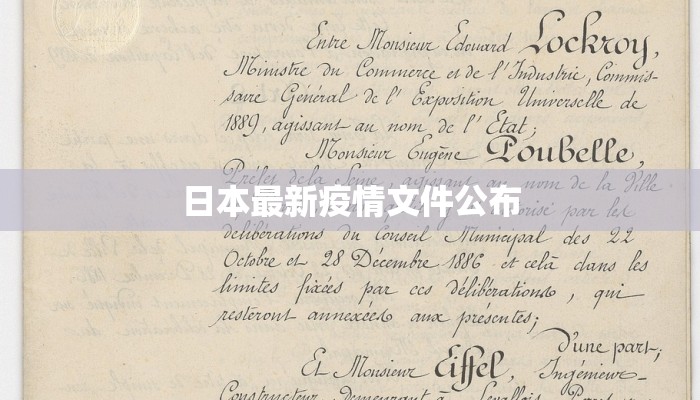 Entre Monsieur Edouard Lockroy,
Ministre du Commerce et de l'Industrie, Commis-
saire Général de l'Exposition Universelle de
1889, agissant au nom de l'Etat;
Monsieur Eugène Poubelle,
Préfet de la Seine, agissant au nom de la Ville
日本最新疫情文件公布
autorisé par les
délibérations du Conseil Municipal des 22
Octobre et 28 Decembre 1886 et celà dans les
limites fixées par ces délibérations, qui
resteront annexées aux présentes;
d'une part;
Et Monsieur Eiffel, Ingénieur-
Constructeur, demeurant à Levallois Perret